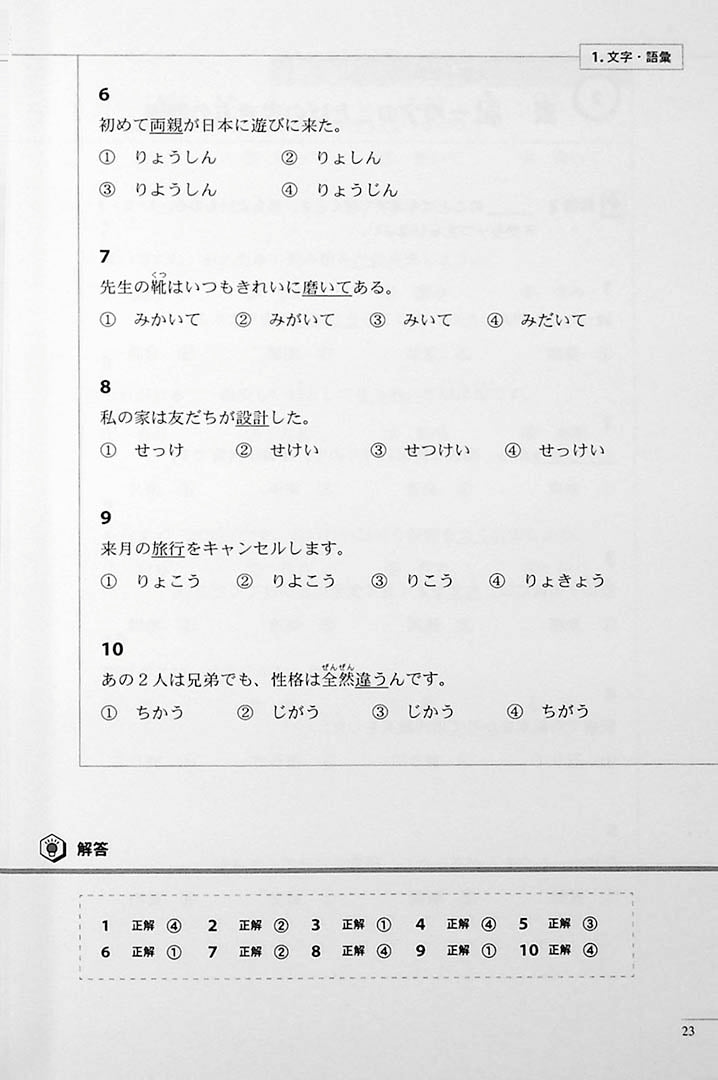 1. 文字・語彙
6
初めて両親が日本に遊びに来た。
① りょうしん ② りょしん
③ りようしん ④ りょうじん
7
くつ
先生の靴はいつもきれいに磨いてある。
① みかいて ② みがいて ③ みいて ④ みだいて
8
私の家は友だちが設計した。
① せっけ ② せけい ③ せつけい ④ せっけい
9
来月の旅行をキャンセルします。
① りょこう ② りよこう ③ りこう ④ りょきょう
10
ぜんぜん
あの2人は兄弟でも、性格は全然違うんです。
① ちかう ② じがう ③ じかう ④ ちがう
解答
1 正解 ④ 2 正解 ② 3 正解 ① 4 正解 ④ 5 正解 ③
6 正解 ① 7 正解 ② 8 正解 ④ 9 正解 ① 10 正解 ④
23